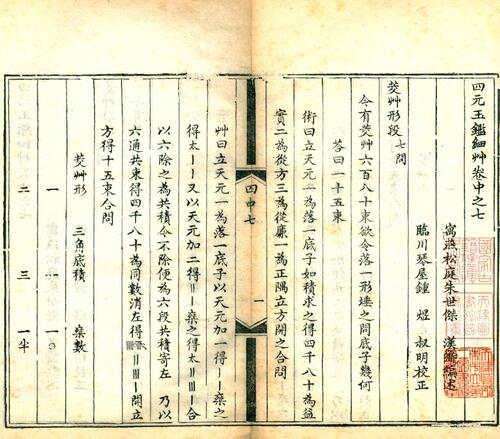 四元玉鑑細艸卷中之七
寓燕松庭朱世傑 漢卿編述
臨川琴屋鍾 煜 叔明校正
茭艸形段 七問
今有茭艸六百八十束欲令落一形埵之問底子幾何
答曰一十五束
術曰立天元一為落一底子如積求之得四千八十為益
實二為從方三為從廉一為正隅立方開之合問
艸曰立天元一為落一底子以天元加一得一|乘之
得太一|又以天元加二得‖|乘之得太‖Ⅲ|合
以六除之為共積今不除便為六段共積寄左 乃以
六通共束得四千八十為同數消左得 ‖Ⅲ|開立
方得十五束合問
茭艸形 三角底積 乘數
一 一 一〇
二 三 一半
四中七
一